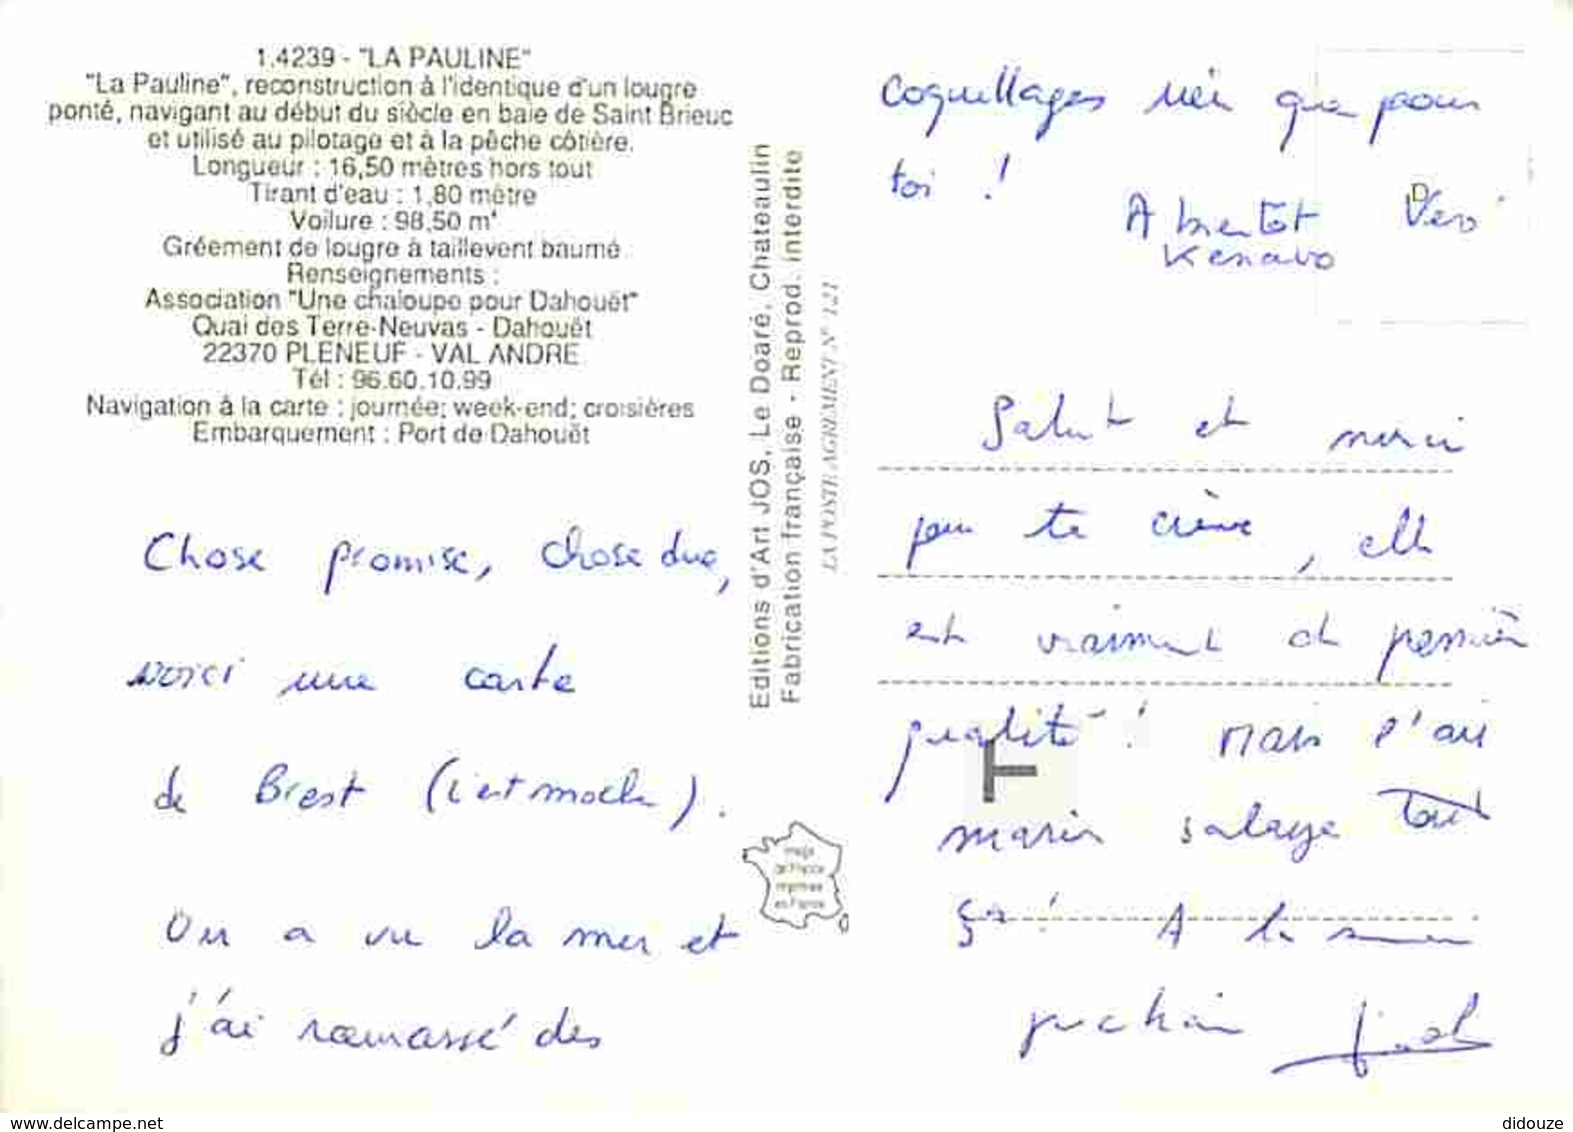 1.4239 - "LA PAULINE"
"La Pauline", reconstruction à l'identique d'un lougre
ponté, navigant au début du siècle en baie de Saint Brieuc
et utilisé au pilotage et à la pêche côtière.
Longueur : 16,50 mètres hors tout
Tirant d'eau : 1,80 mètre
Voilure : 98,50 m²
Gréement de lougre à taillevent baumé
Renseignements :
Association "Une chaloupe pour Dahouët"
Quai des Terre-Neuvas - Dahouët
22370 PLENEUF - VAL ANDRE
Tél : 96.60.10.99
Navigation à la carte : journée; week-end; croisières
Embarquement : Port de Dahouët
Chose promise, chose due,
voici une carte
de Brest (c'est moche).
On a vu la mer et
j'ai ramassé des
Editions d'Art JOS, Le Doaré, Chateaulin
Fabrication française - Reprod. interdite
LA POSTE AGREMENT N° 121
Image
de France
imprimée
en France
coquillages rien que pour
toi !
A bientôt Véro
Kenavo
Salut et merci
pour ta crème, elle
est vraiment de première
qualité ! Mais l'air
marin salage tout
ça ! A la semaine
prochaine
www.delcampe.net
didouze